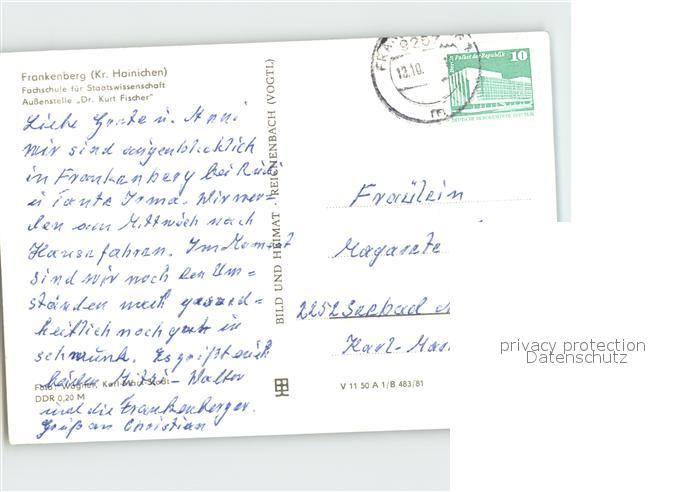 Frankenberg (Kr. Hainichen)
Fachschule für Staatswissenschaft
Außenstelle „Dr. Kurt Fischer“
Liebe Grete u. Anni
wir sind augenblicklich
in Frankenberg bei Rudi
u Tante Irma. Wir wer=
den am Mittwoch nach
Hause fahren. Im Moment
sind wir noch den Um=
ständen nach gesund=
heitlich noch gut in
schwunk. Es grüßt euch
beiden Mutti - Walter
und die Frankenberger.
Gruß an Christian
Foto: Wagner, Karl-Marx-Stadt
DDR 0,20 M
BILD UND HEIMAT · REICHENBACH (VOGTL)
V 11 50 A 1/B 483/81
9257
13.10.
Palast der Republik
10
Fraülein
Magarete
2252 Seebad
Karl-Mar
privacy protection
Datenschutz